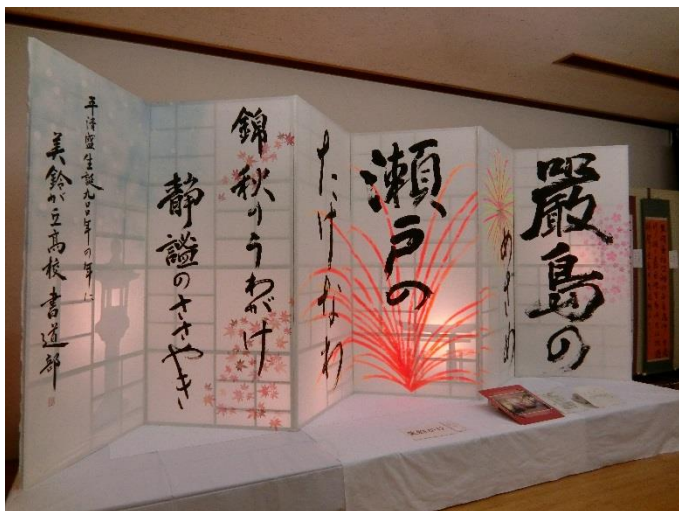 嚴島の
めざめ
瀬戸の
たけなわ
錦秋のうわがけ
静謐のささやき
平清盛生誕九百年の年に
美鈴が丘高校書道部